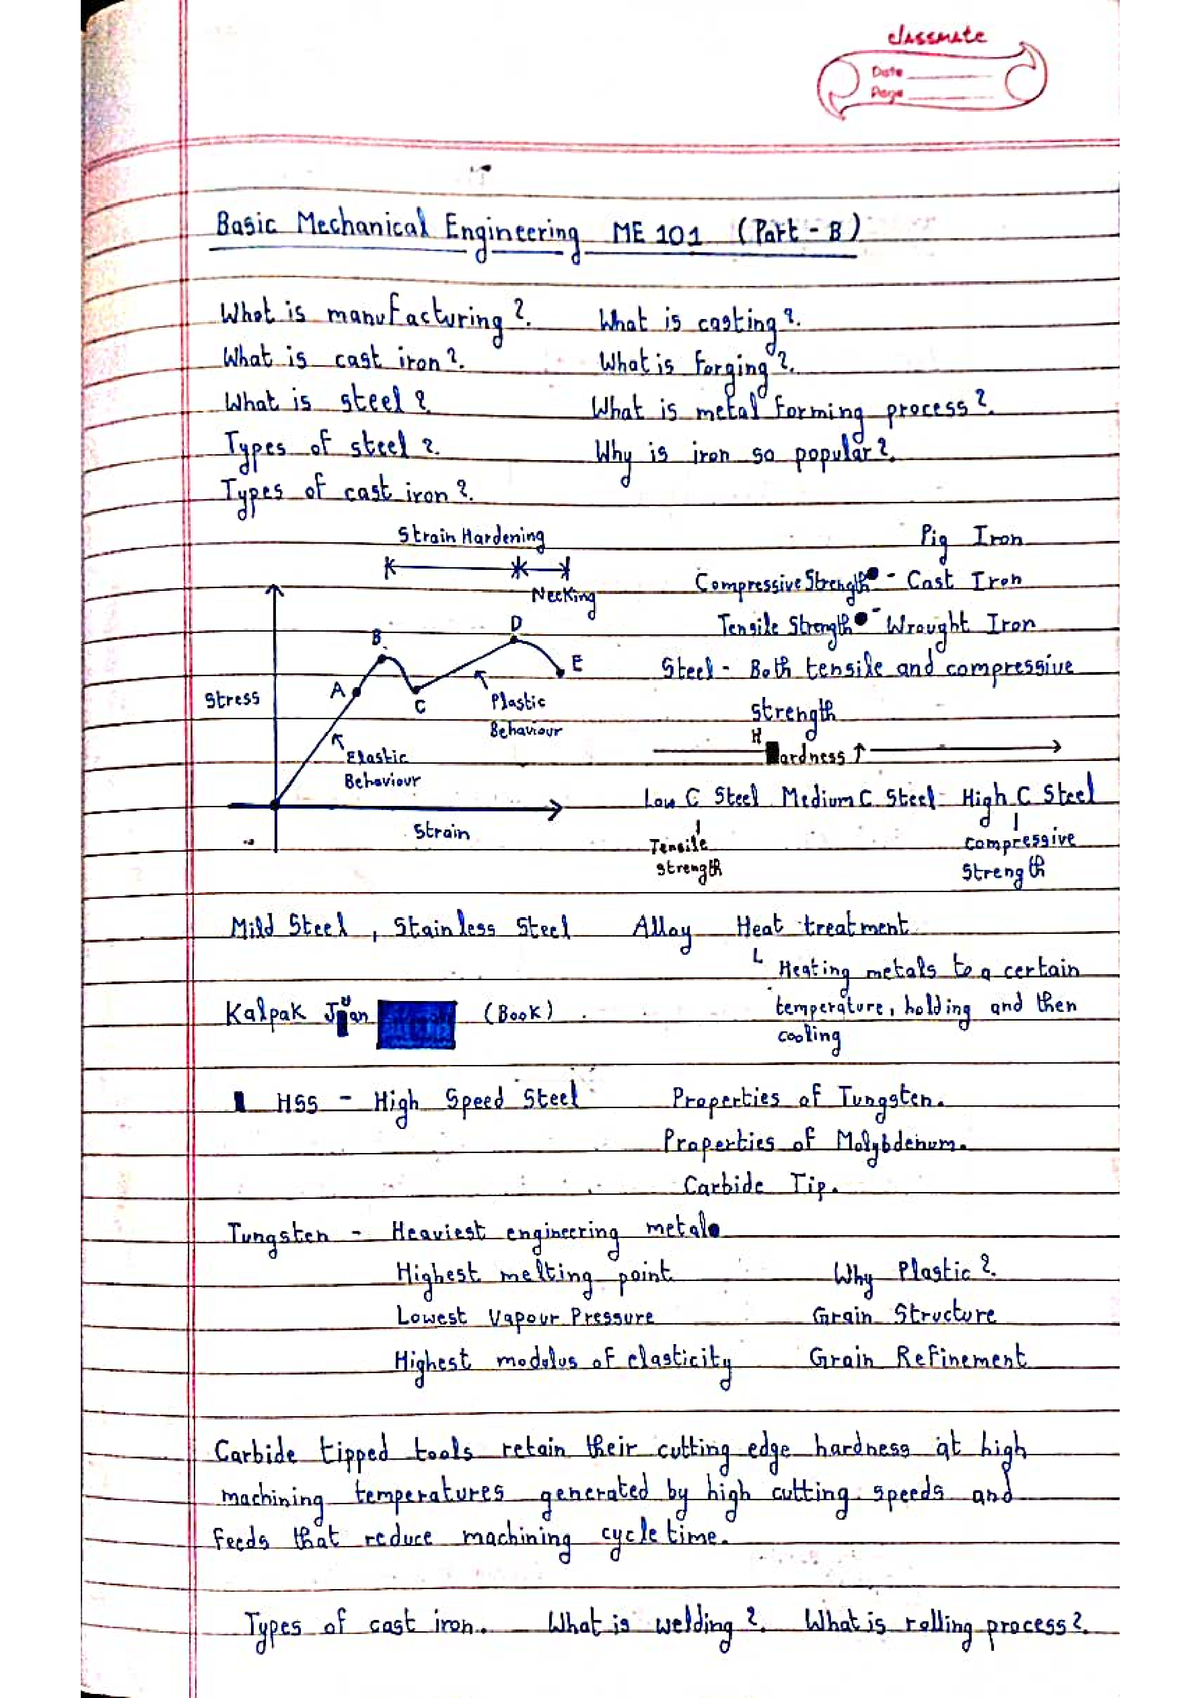 classmate
Date
Page
Basic Mechanical Engineering ME 101 (Part - B)
What is manufacturing?. What is casting?.
What is cast iron?. What is Forging?.
What is steel? What is metal Forming process?.
Types of steel?. Why is iron so popular?.
Types of cast iron?.
Strain Hardening
Necking
Pig Iron
Compressive Strength - Cast Iron
Tensile Strength - Wrought Iron
Steel - Both tensile and compressive
strength
Stress
A
B
C
D
E
Plastic
Behaviour
Elastic
Behaviour
Strain
Hardness ↑
Low C Steel Medium C Steel High C Steel
Tensile
strength
Compressive
Strength
Mild Steel, Stainless Steel Alloy Heat treatment
Heating metals to a certain
temperature, holding and then
cooling
Kalpak (Book)
HSS - High Speed Steel Properties of Tungsten.
Properties of Molybdenum.
Carbide Tip.
Tungsten - Heaviest engineering metal
Highest melting point Why Plastic?.
Lowest Vapour Pressure Grain Structure
Highest modulus of elasticity Grain Refinement
Carbide tipped tools retain their cutting edge hardness at high
machining temperatures generated by high cutting speeds and
feeds that reduce machining cycle time.
Types of cast iron. What is welding?. What is rolling process?.